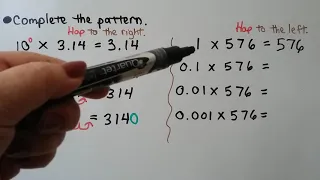 Complete the pattern.
Hop to the right.
10⁰ × 3.14 = 3.14
314
= 3140
Hop to the left.
1 × 576 = 576
0.1 × 576 =
0.01 × 576 =
0.001 × 576 =
Quartet